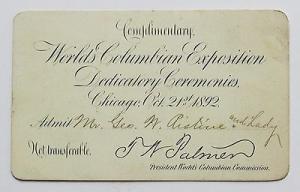 Complimentary.
World's Columbian Exposition
Dedicatory Ceremonies,
Chicago, Oct. 21st 1892.
Admit Mr. Geo. W. Ristine and Lady
Not transferable.
T W Palmer
President World's Columbian Commission.